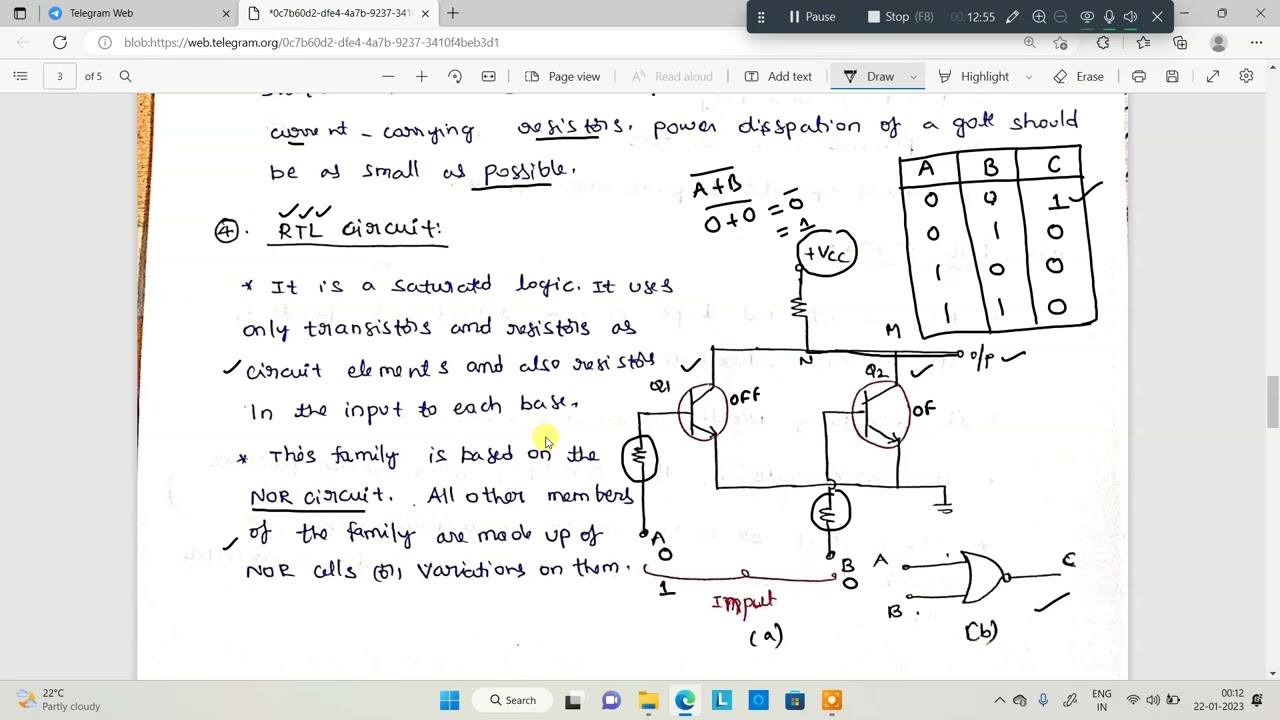 Telegram Web
*0c7b60d2-dfe4-4a7b-9237-341
Pause
Stop (F8)
00:12:55
blob:https://web.telegram.org/0c7b60d2-dfe4-4a7b-9237-3410f4beb3d1
3 of 5
Page view
Read aloud
Add text
Draw
Highlight
Erase
current - carrying resistors. power disspation of a gate should
be as small as possible.
④. RTL circuit:
* It is a saturated logic. It uses
only transistors and resistors as
circuit elements and also resistors
In the input to each base.
* This family is based on the
NOR circuit. All other members
of the family are made up of
NOR cells (or) variations on them.
A+B
0+0 = 0
= 1
+Vcc
A B C
0 0 1
0 1 0
1 0 0
1 1 0
M
N
o/p
Q1
OFF
Q2
OF
A
0
1
B
0
Input
(a)
A
B
C
(b)
22°C
Partly cloudy
Search
ENG
IN
00:12
22-01-2023